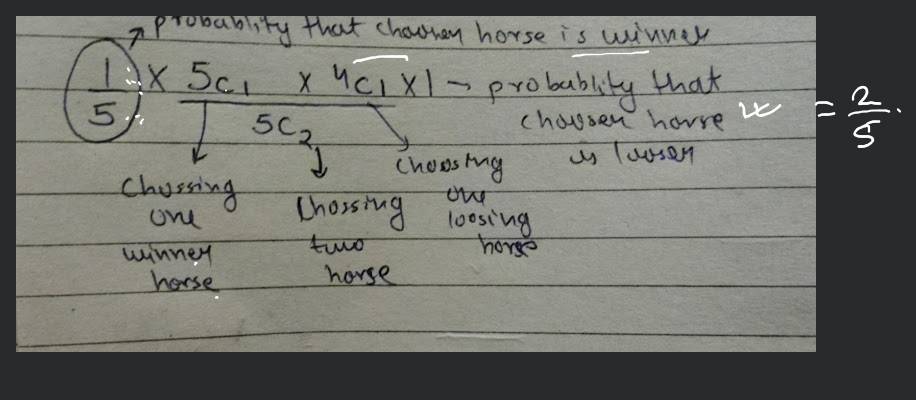 probablity that choosen horse is winner
1/5 × 5C1 × 4C1 × 1 → probablity that
5C2 choosen horse = 2/5.
is looser
Chossing one winner horse
Chossing two horse
Choosing one loosing horse